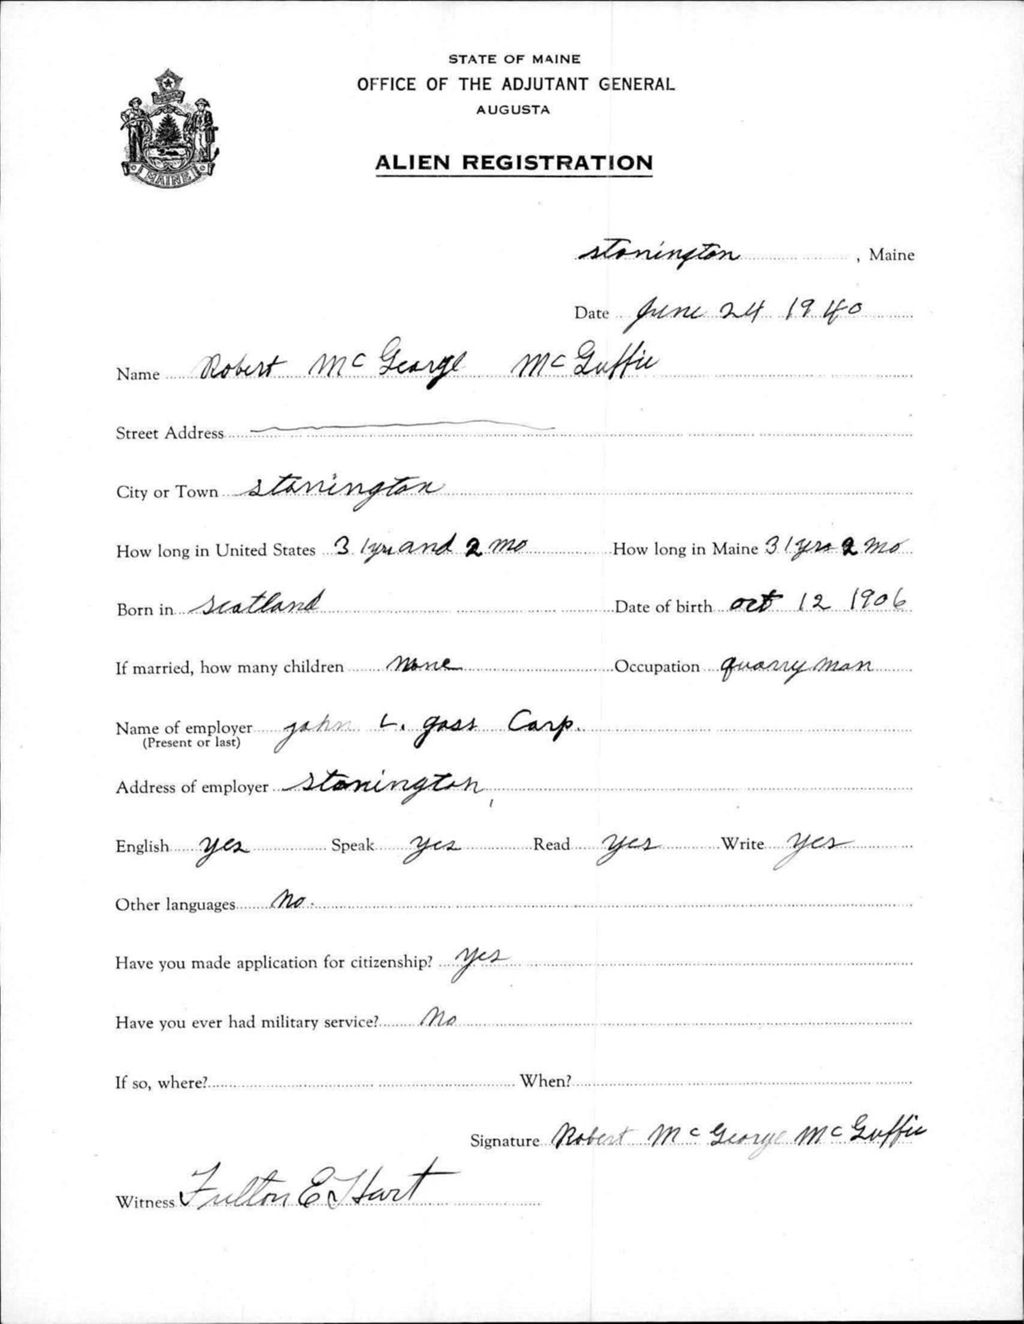 STATE OF MAINE
OFFICE OF THE ADJUTANT GENERAL
AUGUSTA
MAINE
ALIEN REGISTRATION
stonington, Maine
Date June 24 1940
Name Robert McGeorge McGuffie
Street Address
City or Town stonington
How long in United States 31 yrs and 2 mo How long in Maine 31 yrs 2 mo
Born in Scotland Date of birth oct 12 1906
If married, how many children None Occupation quarry man
Name of employer john L. goss Corp.
(Present or last)
Address of employer stonington,
English yes Speak yes Read yes Write yes
Other languages No.
Have you made application for citizenship? yes
Have you ever had military service? No
If so, where? When?
Signature Robert McGeorge McGuffie
Witness Fulton E Hart